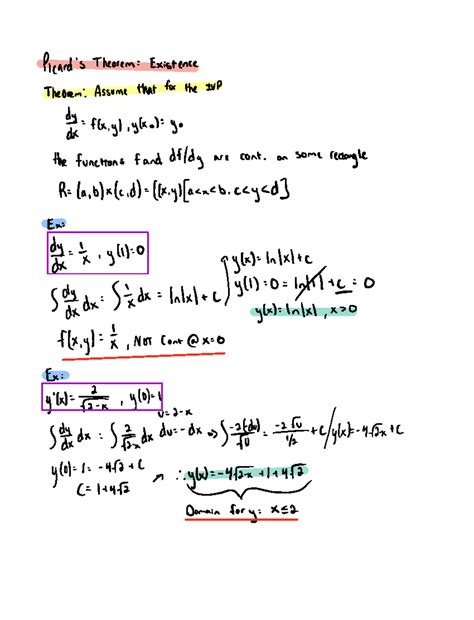 Picard's Theorem: Existence
Theorem: Assume that for the IVP
dy/dx = f(x,y), y(x₀) = y₀
the functions f and df/dy are cont. on some rectangle
R = (a,b)×(c,d) = {(x,y)[a<x<b, c<y<d]
Ex:
dy/dx = 1/x, y(1)=0
∫ dy/dx dx = ∫ 1/x dx = ln|x| + c
y(x) = ln|x| + c
y(1) = 0 = ln|1| + c = 0
y(x) = ln|x|, x>0
f(x,y) = 1/x, NOT cont @ x=0
Ex:
y'(x) = 2/√(2-x), y(0)=1
u = 2-x
∫ dy/dx dx = ∫ 2/√(2-x) dx du = -dx ⇒ ∫ -2(du)/√u = -2√u/(1/2) + C / y(x) = -4√(2-x) + C
y(0) = 1 = -4√2 + C
C = 1+4√2
∴ y(x) = -4√(2-x) + 1 + 4√2
Domain for y: x ≤ 2